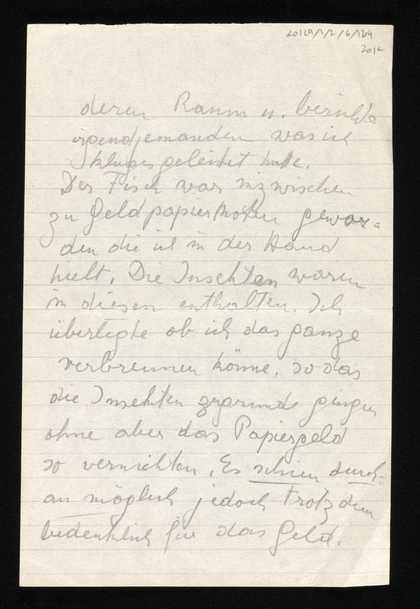 deren Raum u. berichte
irgendjemanden was ich
kluges geleistet hatte.
Der Fisch war inzwischen
zu Geldpapiernoten gewor-
den die ich in der Hand
hielt. Die Insekten waren
in diesen enthalten. Ich
überlegte ob ich das ganze
verbrennen könne, so das
die Insekten zugrunde gingen
ohne aber das Papiergeld
zu vernichten. Es schien durch-
an möglich jedoch Trotzdem
bedenklich für das Geld.